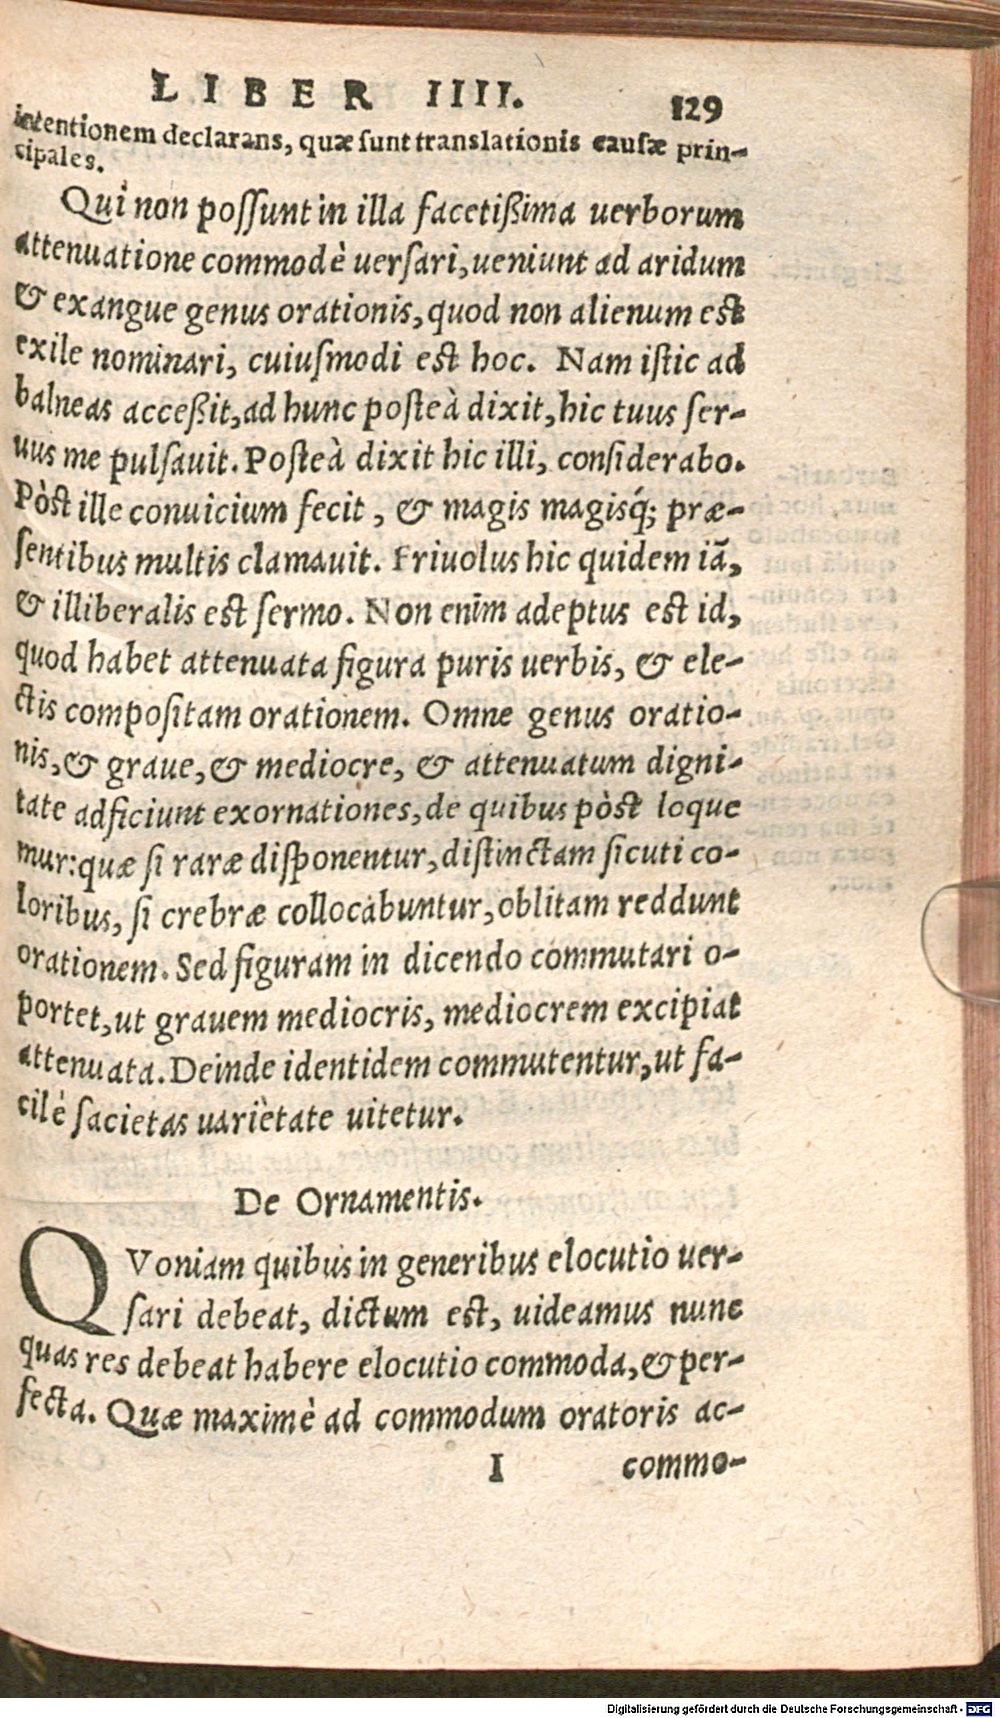 LIBER IIII. 129
intentionem declarans, quæ ſunt translationis cauſæ prin-
cipales.
Qui non poſſunt in illa facetißima uerborum
attenuatione commodè uerſari, ueniunt ad aridum
& exangue genus orationis, quod non alienum est
exile nominari, cuiuſmodi est hoc. Nam iſtic ad
balneas acceßit, ad hunc poſteà dixit, hic tuus ſer-
uus me pulſauit. Poſteà dixit hic illi, conſiderabo.
Pòst ille conuicium fecit, & magis magisq́; præ-
ſentibus multis clamauit. Friuolus hic quidem iã,
& illiberalis est ſermo. Non enim adeptus est id,
quod habet attenuata figura puris uerbis, & ele-
ctis compoſitam orationem. Omne genus oratio-
nis, & graue, & mediocre, & attenuatum digni-
tate adficiunt exornationes, de quibus pòst loque
mur: quæ ſi raræ diſponentur, diſtinctam ſicuti co-
loribus, ſi crebræ collocabuntur, oblitam reddunt
orationem. Sed figuram in dicendo commutari o-
portet, ut grauem mediocris, mediocrem excipiat
attenuata. Deinde identidem commutentur, ut fa-
cilè ſacietas uarietate uitetur.
De Ornamentis.
QVoniam quibus in generibus elocutio uer-
ſari debeat, dictum est, uideamus nunc
quas res debeat habere elocutio commoda, & per-
fecta. Quæ maximè ad commodum oratoris ac-
I commo-
Digitalisierung gefördert durch die Deutsche Forschungsgemeinschaft - DFG